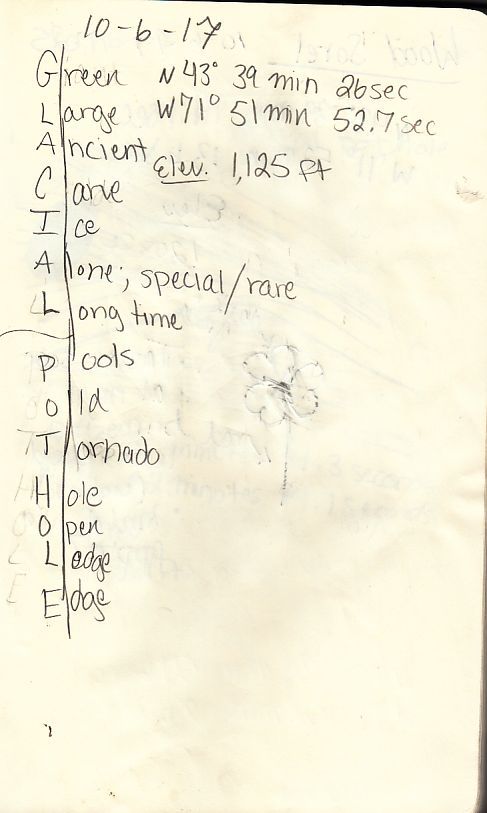 10-6-17
Green N 43° 39 min 26sec
Large W71° 51min 52.7sec
Ancient Elev. 1,125 ft
Carve
Ice
Alone; special/rare
Long time
Pools
Old
Tornado
Hole
Open
Ledge
Edge